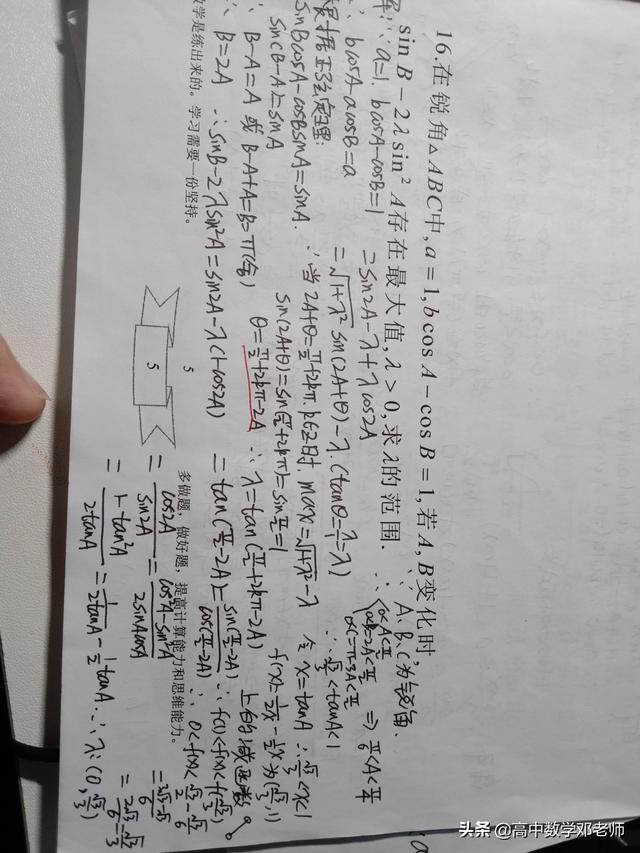 16.在锐角△ABC中, a = 1, b cos A − cos B = 1, 若 A, B 变化时,
sin B − 2λ sin² A 存在最大值, λ > 0, 求 λ 的范围.
∵ a=1. bcosA-cosB=1
∴ bcosA-acosB=a
根据正弦定理:
sinBcosA-cosBsinA=sinA.
sin(B-A)=sinA
∴ B-A=A 或 B-A+A=B=π(舍)
∴ B=2A ∴ sinB-2λsin²A=sin2A-λ(1-cos2A)
=sin2A-λ+λcos2A
=√1+λ² sin(2A+θ)-λ. (tanθ=λ/1=λ)
∴ 当 2A+θ=π/2+2kπ, k∈Z时. max=√1+λ²-λ
sin(2A+θ)=sin(π/2+2kπ)=sinπ/2=1
θ=π/2+2kπ-2A ∴ λ=tan(π/2+2kπ-2A)
=tan(π/2-2A)=sin(π/2-2A)/cos(π/2-2A)
=cos2A/sin2A=cos²A-sin²A/2sinAcosA
=1-tan²A/2tanA=1/2tanA-1/2tanA.
∵ A、B、C为锐角.
∴ 0<A<π/2
0<B=2A<π/2
0<π-3A<π/2
⇒ π/6<A<π/4
∴ √3/3<tanA<1
令 x=tanA ∴ √3/3<x<1
f(x)=1/2x-1/2x为(√3/3,1)
上的减函数
∴ f(1)<f(x)<f(√3/3)
∴ 0<f(x)<√3/2-√3/6
=3√3-√3/6
=2√3/6=√3/3
∴ λ∈(0,√3/3)
数学是练出来的。学习需要一份坚持。
5
5
多做题，做好题，提高计算能力和思维能力。
头条 @高中数学邓老师